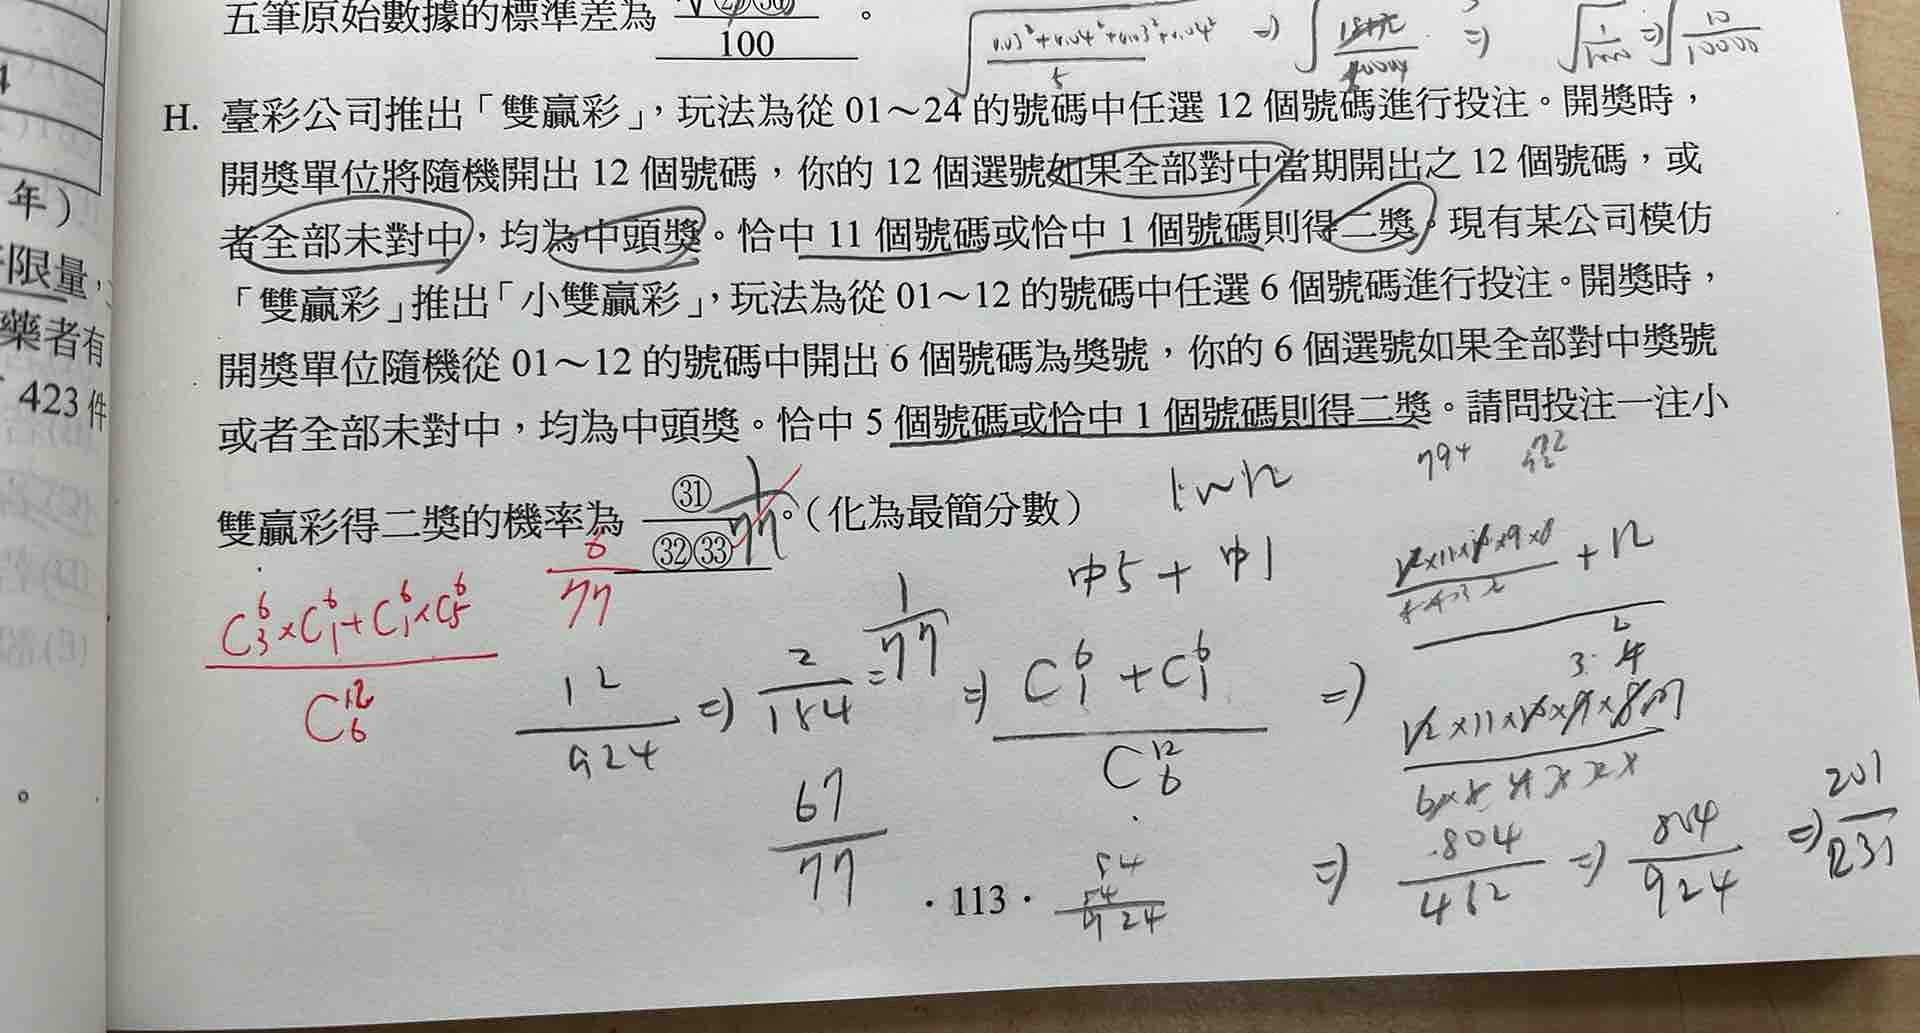 五筆原始數據的標準差為
100
4
年)
限量,
藥者有
423 件
H. 臺彩公司推出「雙贏彩」,玩法為從 01~24 的號碼中任選 12 個號碼進行投注。開獎時,
開獎單位將隨機開出 12 個號碼,你的 12 個選號如果全部對中當期開出之 12 個號碼,或
者全部未對中,均為中頭獎。恰中 11 個號碼或恰中 1 個號碼則得二獎。現有某公司模仿
「雙贏彩」推出「小雙贏彩」,玩法為從 01~12 的號碼中任選 6 個號碼進行投注。開獎時,
開獎單位隨機從 01~12 的號碼中開出 6 個號碼為獎號,你的 6 個選號如果全部對中獎號
或者全部未對中,均為中頭獎。恰中 5 個號碼或恰中 1 個號碼則得二獎。請問投注一注小
794
雙贏彩得二獎的機率為 ㉛/㉜㉝ 1/77。(化為最簡分數)
6/77
中5 + 中1
C⁶₃×C⁶₁+C⁶₁×C⁶₅ / C¹²₆
12/924 ⇒ 2/154 = 1/77
⇒ C⁶₁+C⁶₁ / C¹²₆
67/77
⇒ 804/462 ⇒ 804/924 ⇒ 201/231
54
54/924
·113·